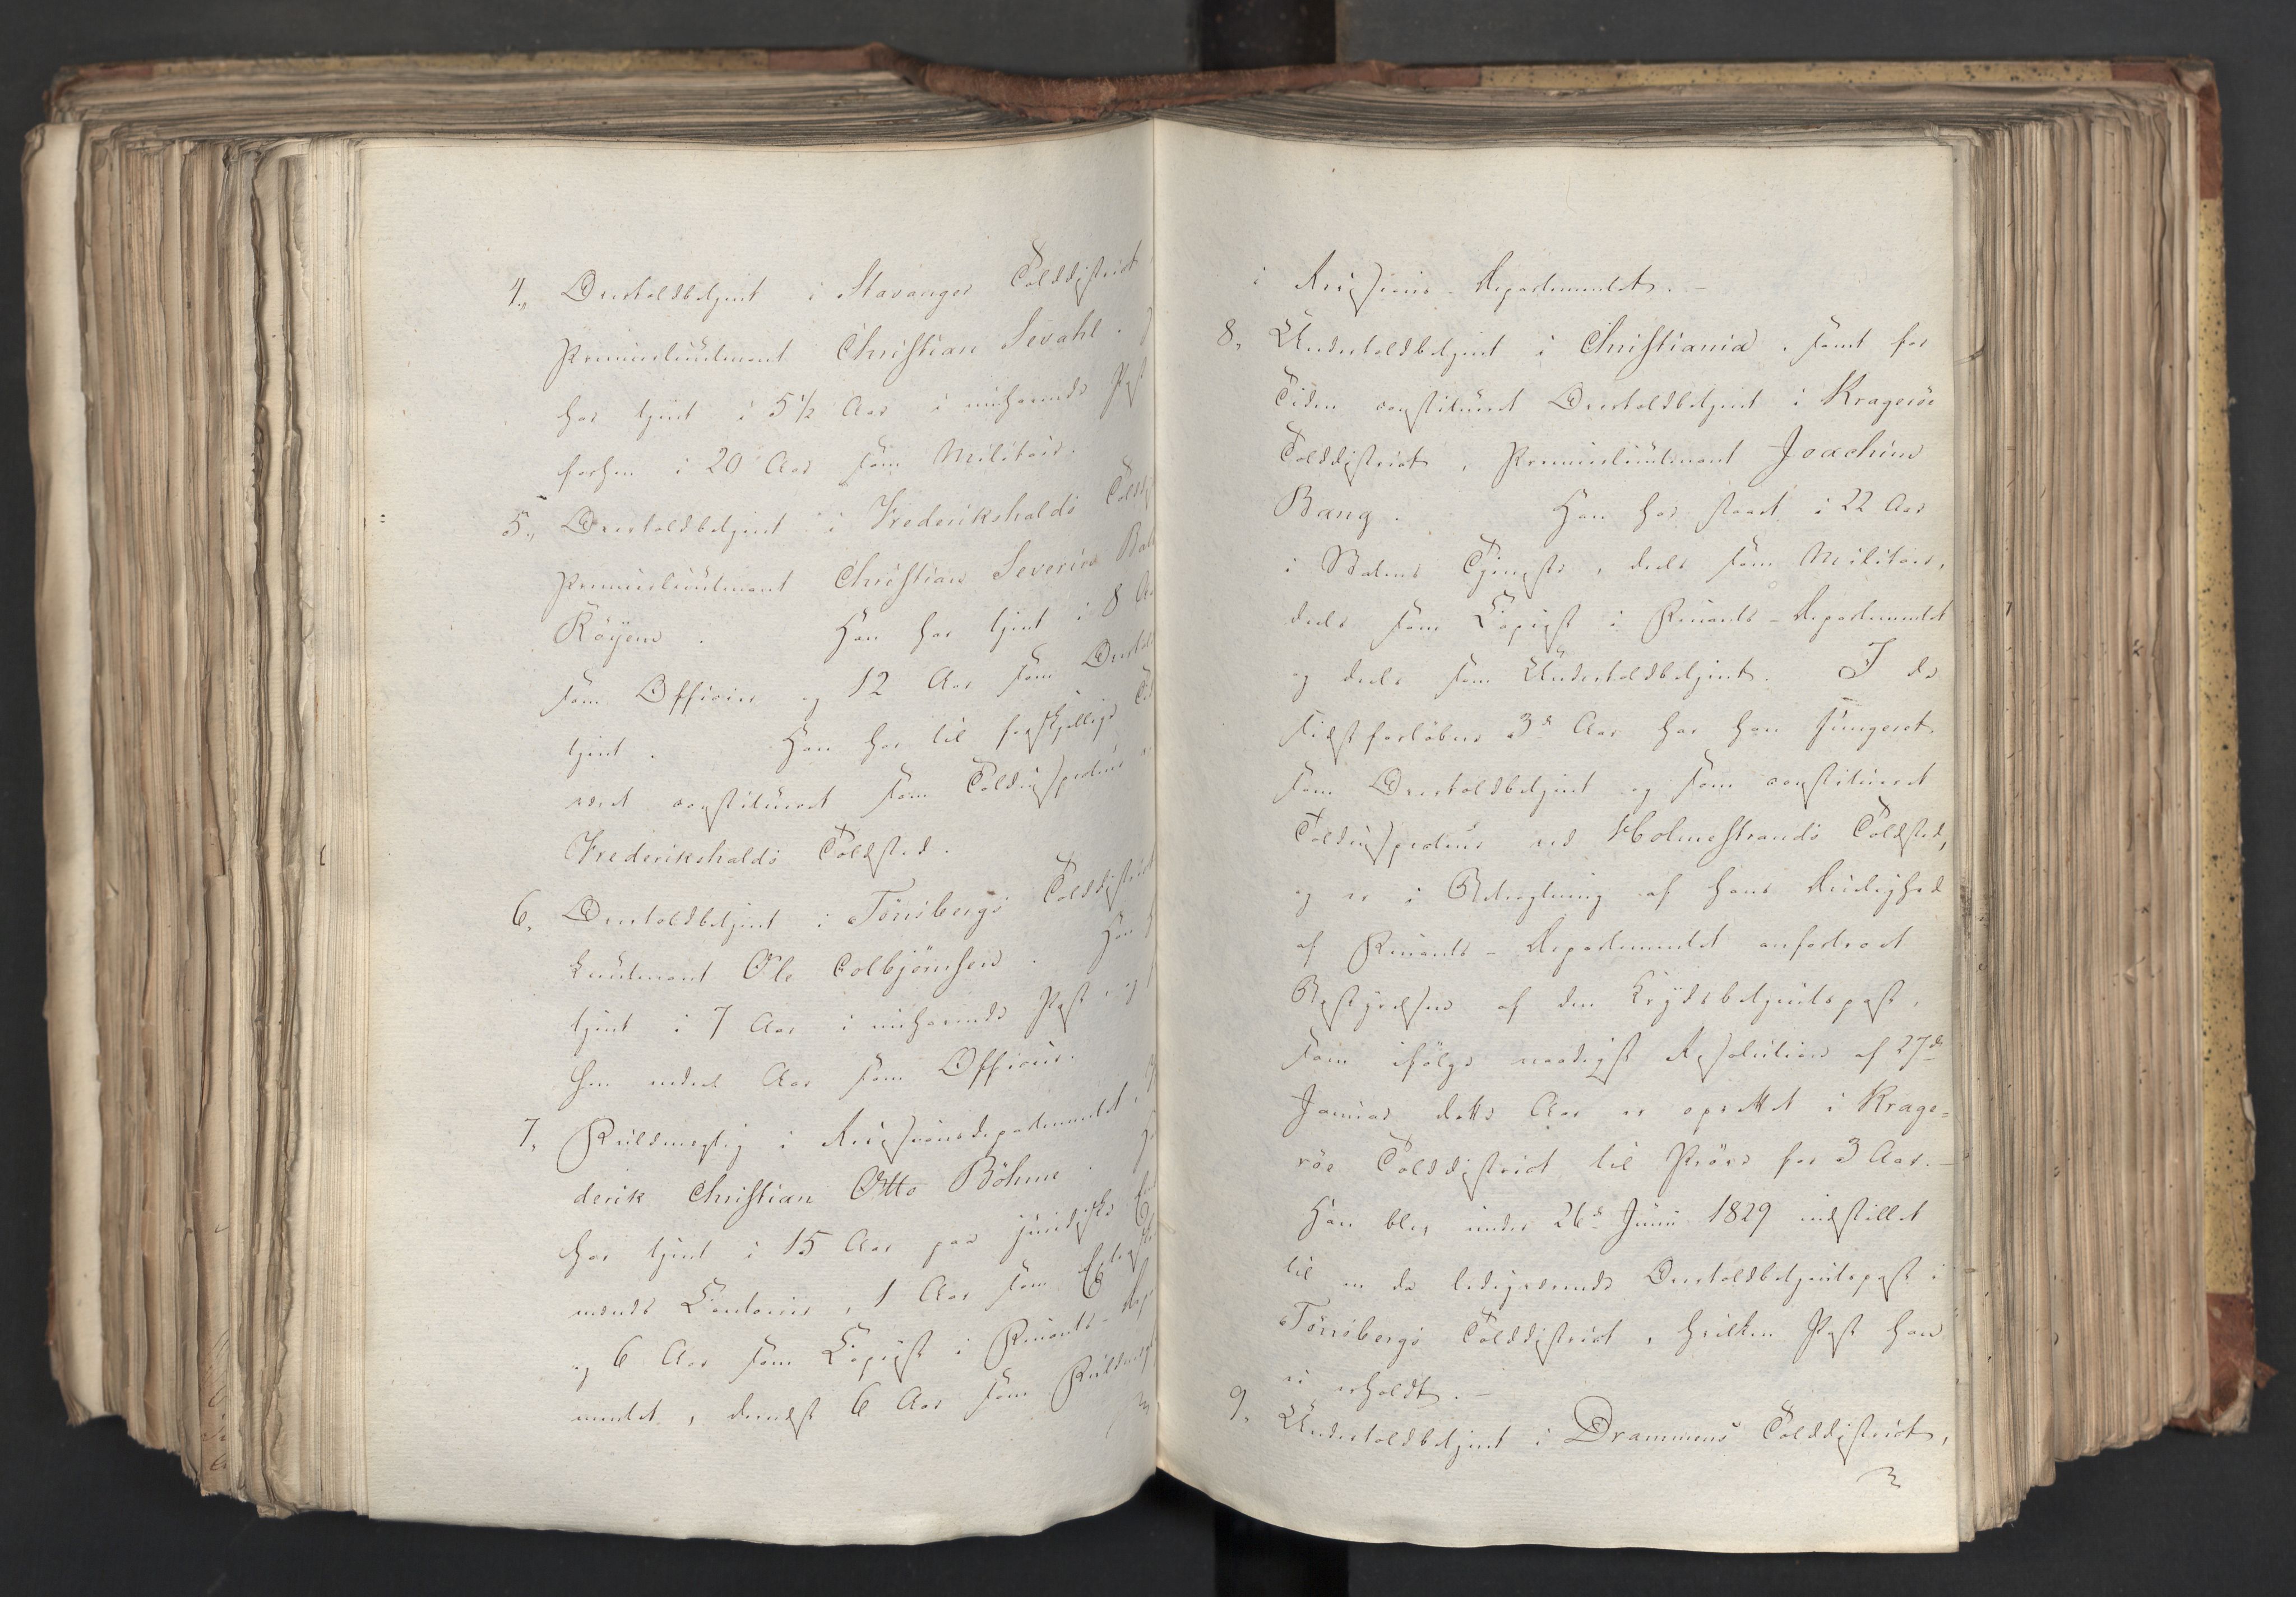 4., Overtoldbetjent i Stavanger Tolddistrict
Premierlieutenant Christian Sevahl.
har tjent i 5 1/2 Aar i nuhavende Post
forhen i 20 Aar som Militair.
5., Overtoldbetjent i Frederikshalds
Premierlieutenant Christian Severin
Röyem. Han har tjent i 8
som Officier og 12 Aar som
tjent. Han har til forskjellige
været constitueret som Toldinspecteur
Frederikshalds Toldsted.
6, Overtoldbetjent i Tönsbergs Tolddistrict
Lieutenant Ole Colbjörnsen. Han
tjent i 7 Aar i nuhavende Post, og
hen endeel Aar som Officier.
7, Fuldmægtig i Revisionsdepartementet,
derik Christian Otto Böhme.
har tjent i 15 Aar paa juridiske
mænds Contoirer, 1 Aar som
og 6 Aar som Copiist i Finants-
mentet, dernæst 6 Aar som
i Revisions-Departementet.-
8, Undertoldbetjent i Christiania, samt for
Tiden constitueret Overtoldbetjent i Krageröe
Tolddistrict, Premierlieutenant Joachim
Bang. Han har staaet i 22 Aar
i Statens Tjeneste, deels som Militair,
deels som Copiist i Finants-Departementet
og deels som Undertoldbetjent. I de
sidstforløbne 3de Aar har han fungeret
som Overtoldbetjent og som constitueret
Toldinspecteur ved Holmestrands Toldsted,
og er i Betragtning af hans Duelighed
af Finants-Departementet anfordret
Bestyrelsen af den Krydsbetjentspost,
som ifølge naadigst Resolution af 27de
Januar dette Aar er oprettet i Krage=
röe Tolddistrict til Prøve for 3 Aar.-
Han blev under 26de Juni 1829 indstillet
til en da ledigværende Overtoldbetjentspost i
Tönsbergs Tolddistrict, hvilken Post han
ei erholdt.-
9, Undertoldbetjent i Drammens Tolddistrict,